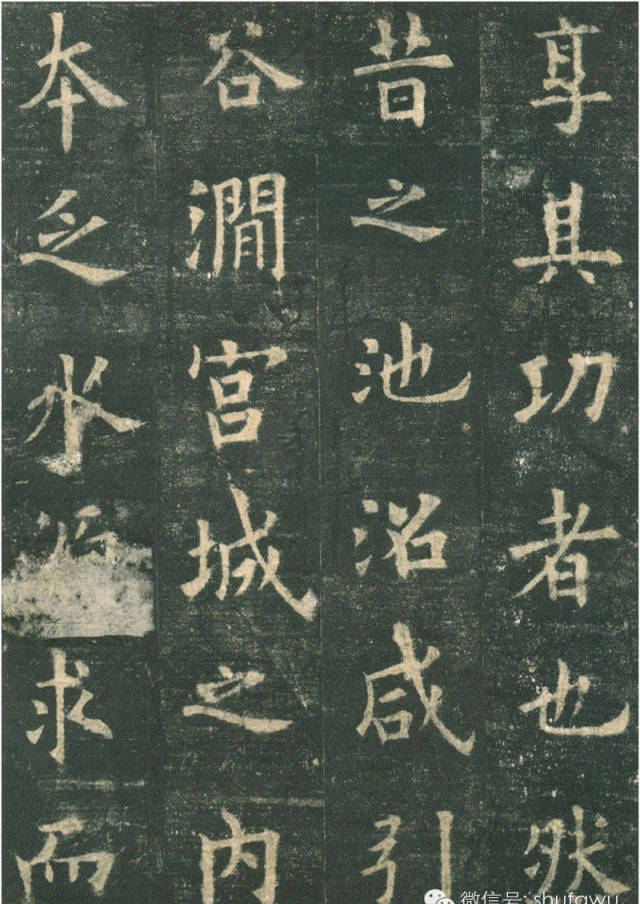 享其功者也然
昔之池沼咸引
谷澗宫城之内
本乏水源求而
微信号: shufawu